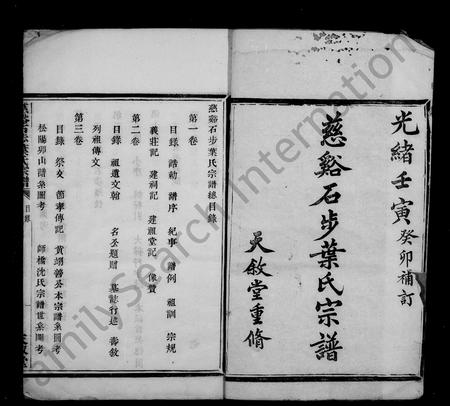 光緒壬寅癸卯補訂
慈谿石步葉氏宗譜
敘堂重脩
慈谿石步葉氏宗譜總目錄
第一卷
目錄 誥勅 譜序 紀事 譜例 祖訓 宗規
義莊記 建祠記 建祖堂記 像贊
第二卷
目錄 祖遺文翰 名公題贈 墓誌行述 壽敘
列祖傳文
第三卷
目錄 祭文 節孝傳記 黃翊善公本宗譜系圖考
松陽卯山譜系圖考 師橋沈氏宗譜世系圖考
目錄
FamilySearch International